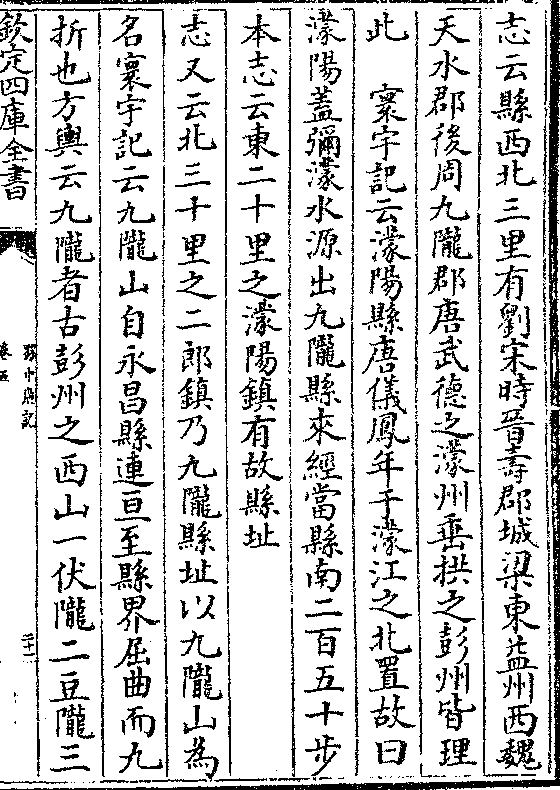 志云縣西北三里有劉宋時晉壽郡城梁東益州西魏
天水郡後周九隴郡唐武德之濛州垂拱之彭州皆理
此　寰宇記云濛陽縣唐儀鳳年于濛江之北置故曰
濛陽蓋彌濛水源出九隴縣來經當縣南二百五十步
本志云東二十里之濛陽鎮有故縣址
志又云北三十里之二郎鎮乃九隴縣址以九隴山為
名寰宇記云九隴山自永昌縣連亘至縣界屈曲而九
折也方輿云九隴者古彭州之西山一伏隴二豆隴三
欽定四庫全書
蜀中廣記
卷五
二十一